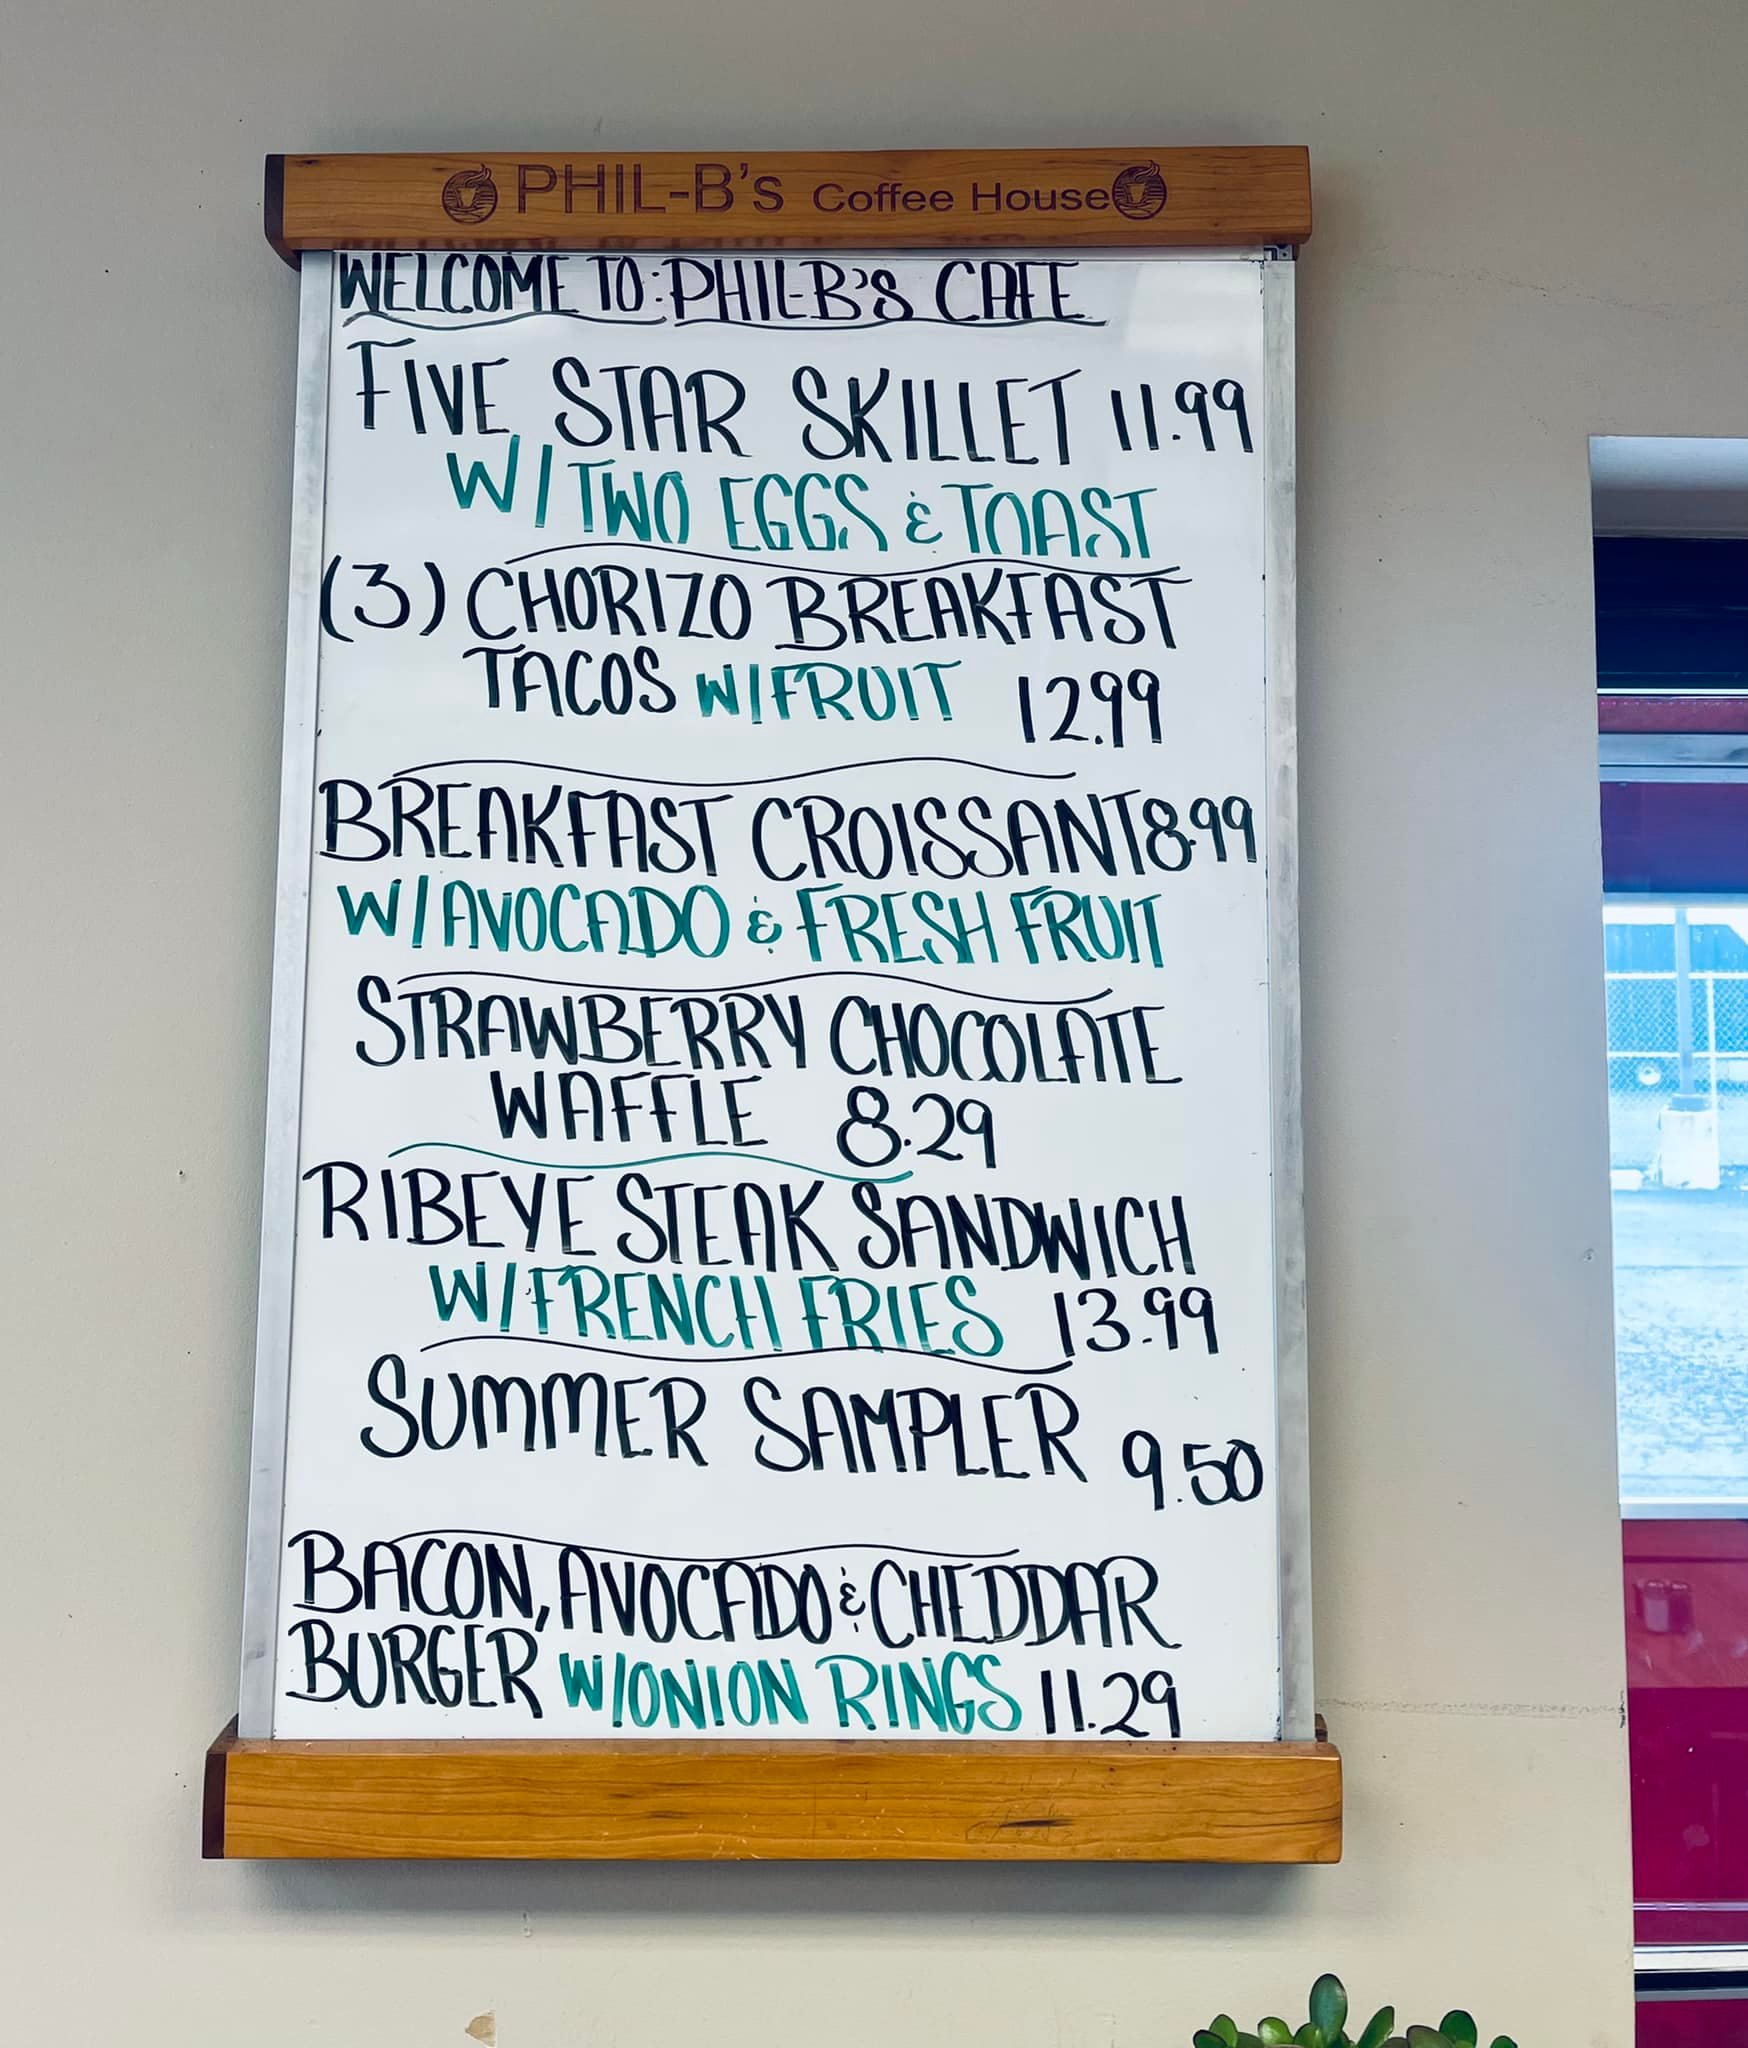 PHIL-B's Coffee House
WELCOME TO: PHIL-B'S CAFE
FIVE STAR SKILLET 11.99
W/TWO EGGS & TOAST
(3) CHORIZO BREAKFAST
TACOS W/FRUIT 12.99
BREAKFAST CROISSANT 8.99
W/AVOCADO & FRESH FRUIT
STRAWBERRY CHOCOLATE
WAFFLE 8.29
RIBEYE STEAK SANDWICH
W/FRENCH FRIES 13.99
SUMMER SAMPLER 9.50
BACON, AVOCADO & CHEDDAR
BURGER W/ONION RINGS 11.29